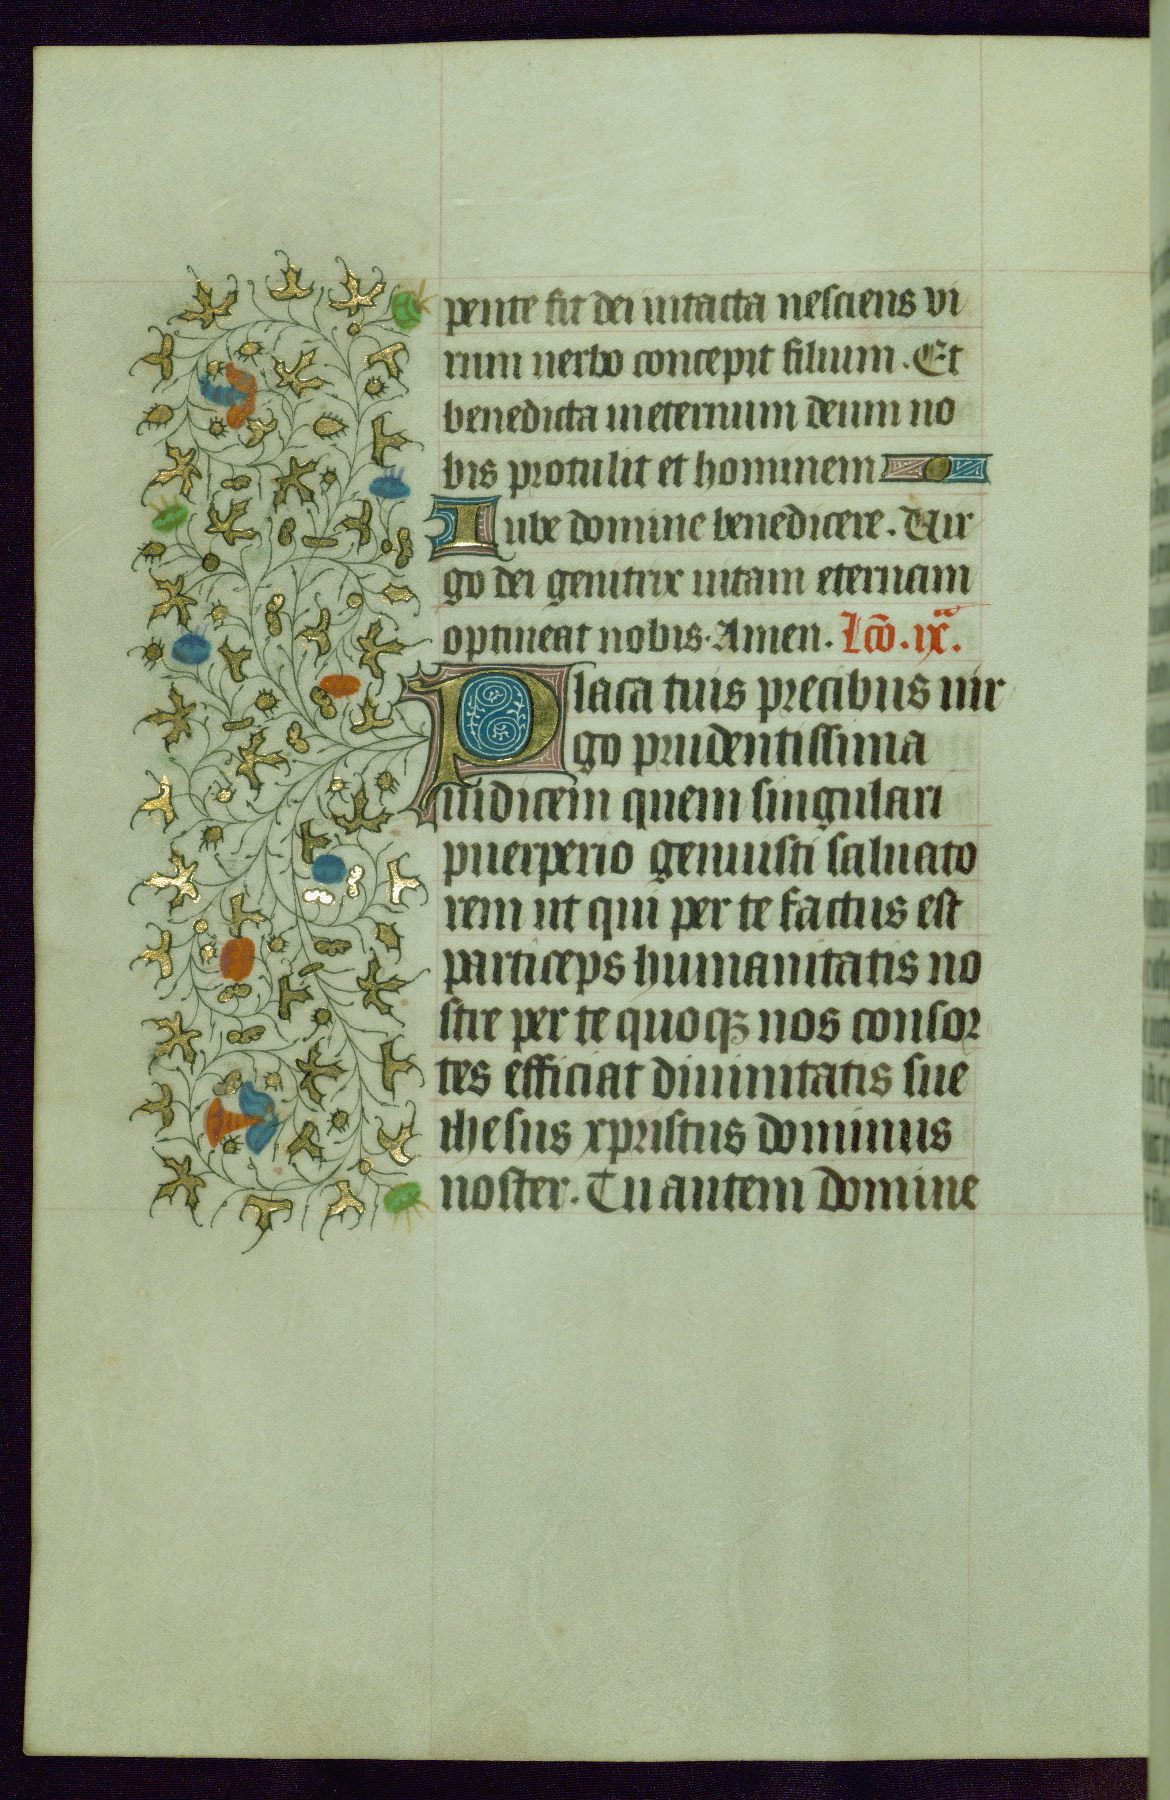 pente fit dei intacta nesciens vi
rum uerbo concepit filium. Et
benedicta ineternum deum no
bis protulit et hominem
Iube domine benedicere. Uir
go dei genitrix uitam eternam
optineat nobis. Amen. Lcō. ixª.
Placa tuis precibus uir
go prudentissima
iudicem quem singulari
puerperio genuisti saluato
rem ut qui per te factus est
particeps humanitatis no
stre per te quoqꝫ nos consor
tes efficiat diuinitatis sue
ihesus xpristus dominus
noster. Tu autem domine